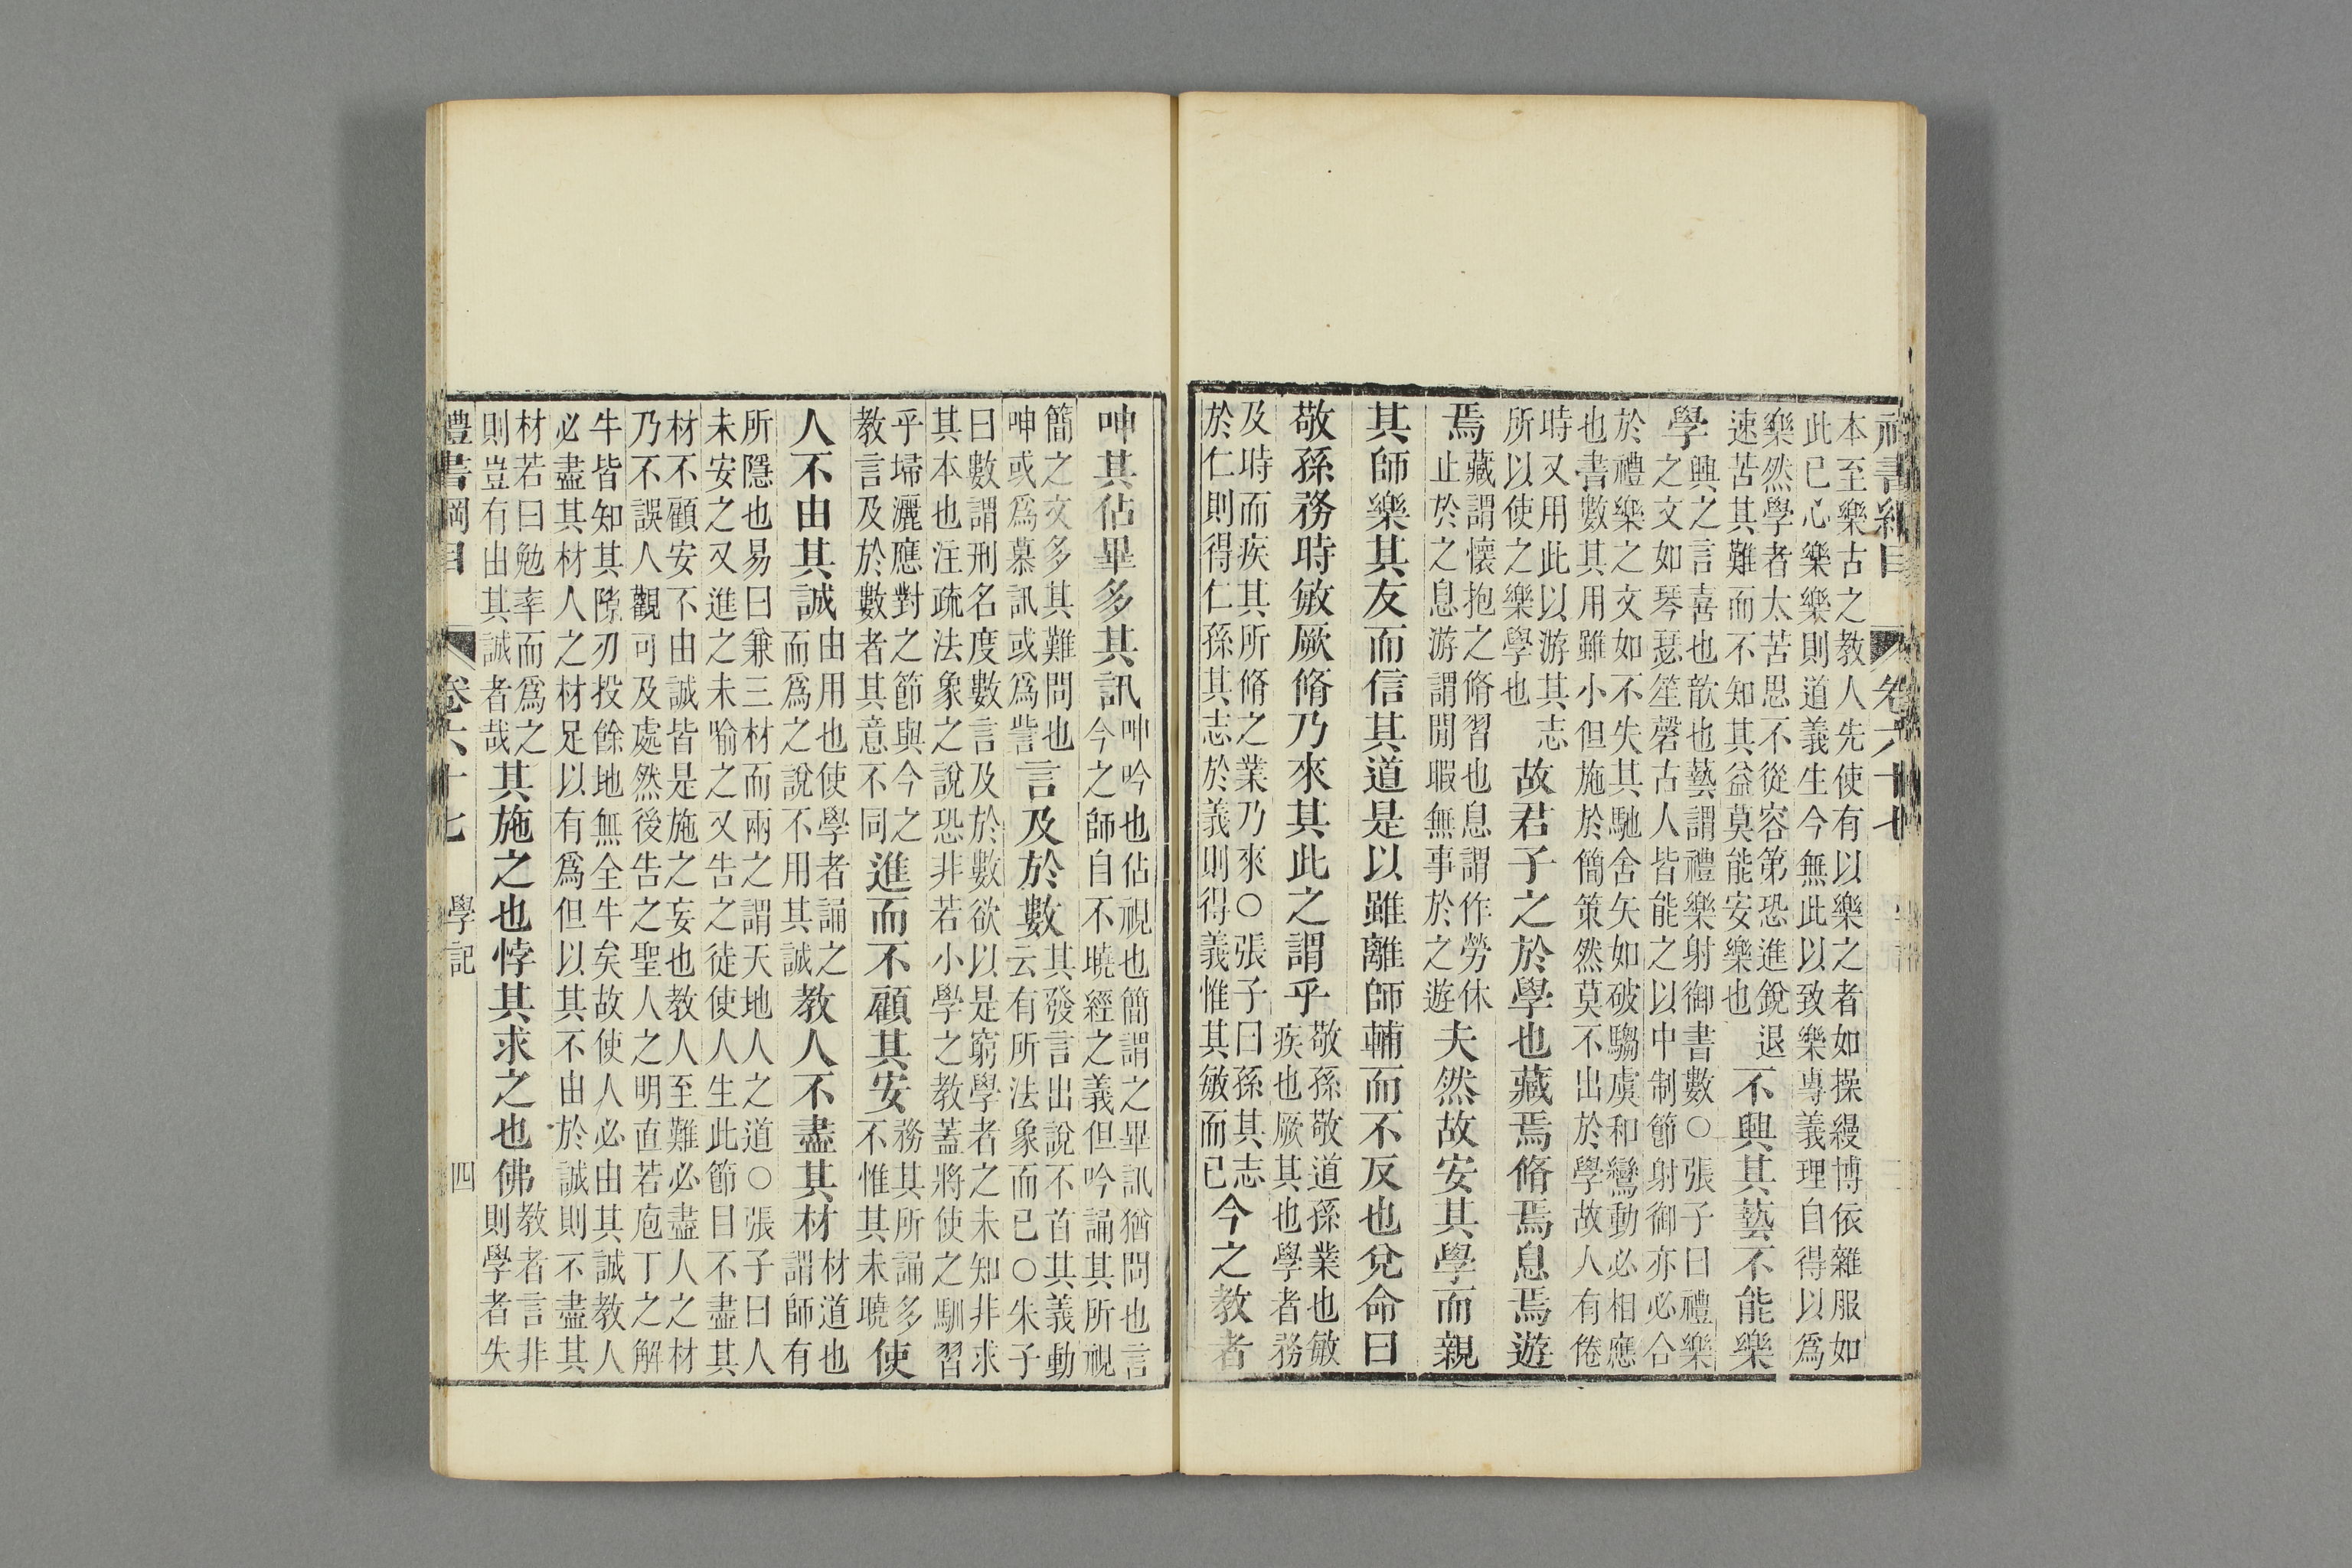 禮書綱目 卷六十七
本至樂古之教人先使有以樂之者如操縵博依雜服如
此已心樂樂則道義生今無此以致樂專義理自得以爲
樂然學者太苦思不從容第恐進銳退
速苦其難而不知其益莫能安樂也
不興其藝不能樂
學
興之言喜也歆也藝謂禮樂射御書數○張子曰禮樂
之文如琴瑟笙磬古人皆能之以中制節射御亦必合
於禮樂之文如不失其馳舍矢如破騶虞和鸞動必相應
也書數其用雖小但施於簡策然莫不出於學故人有倦
時又用此以游其志
所以使之樂學也
故君子之於學也藏焉脩焉息焉遊
焉
藏謂懷抱之脩習也息謂作勞休
止於之息游謂閒暇無事於之遊
夫然故安其學而親
其師樂其友而信其道是以雖離師輔而不反也兌命曰
敬孫務時敏厥脩乃來其此之謂乎
敬孫敬道孫業也敏
疾也厥其也學者務
及時而疾其所脩之業乃來○張子曰孫其志
於仁則得仁孫其志於義則得義惟其敏而已
今之教者
呻其佔畢多其訊
呻吟也佔視也簡謂之畢訊猶問也言
今之師自不曉經之義但吟誦其所視
簡之文多其難問也
呻或爲慕訊或爲訾
言及於數
其發言出說不首其義動
云有所法象而已○朱子
曰數謂刑名度數言及於數欲以是窮學者之未知非求
其本也注疏法象之說恐非若小學之教蓋將使之馴習
乎埽灑應對之節與今之
教言及於數者其意不同
進而不顧其安
務其所誦多
不惟其未曉
使
人不由其誠
由用也使學者誦之
而爲之說不用其誠
教人不盡其材
材道也
謂師有
所隱也易曰兼三材而兩之謂天地人之道○張子曰人
未安之又進之未喻之又告之徒使人生此節目不盡其
材不顧安不由誠皆是施之妄也教人至難必盡人之材
乃不誤人觀可及處然後告之聖人之明直若庖丁之解
牛皆知其隙刃投餘地無全牛矣故使人必由其誠教人
必盡其材人之材足以有爲但以其不由於誠則不盡其
材若曰勉率而爲之
則豈有由其誠者哉
其施之也悖其求之也佛
教者言非
則學者失
禮書綱目 卷六十七 學記 四